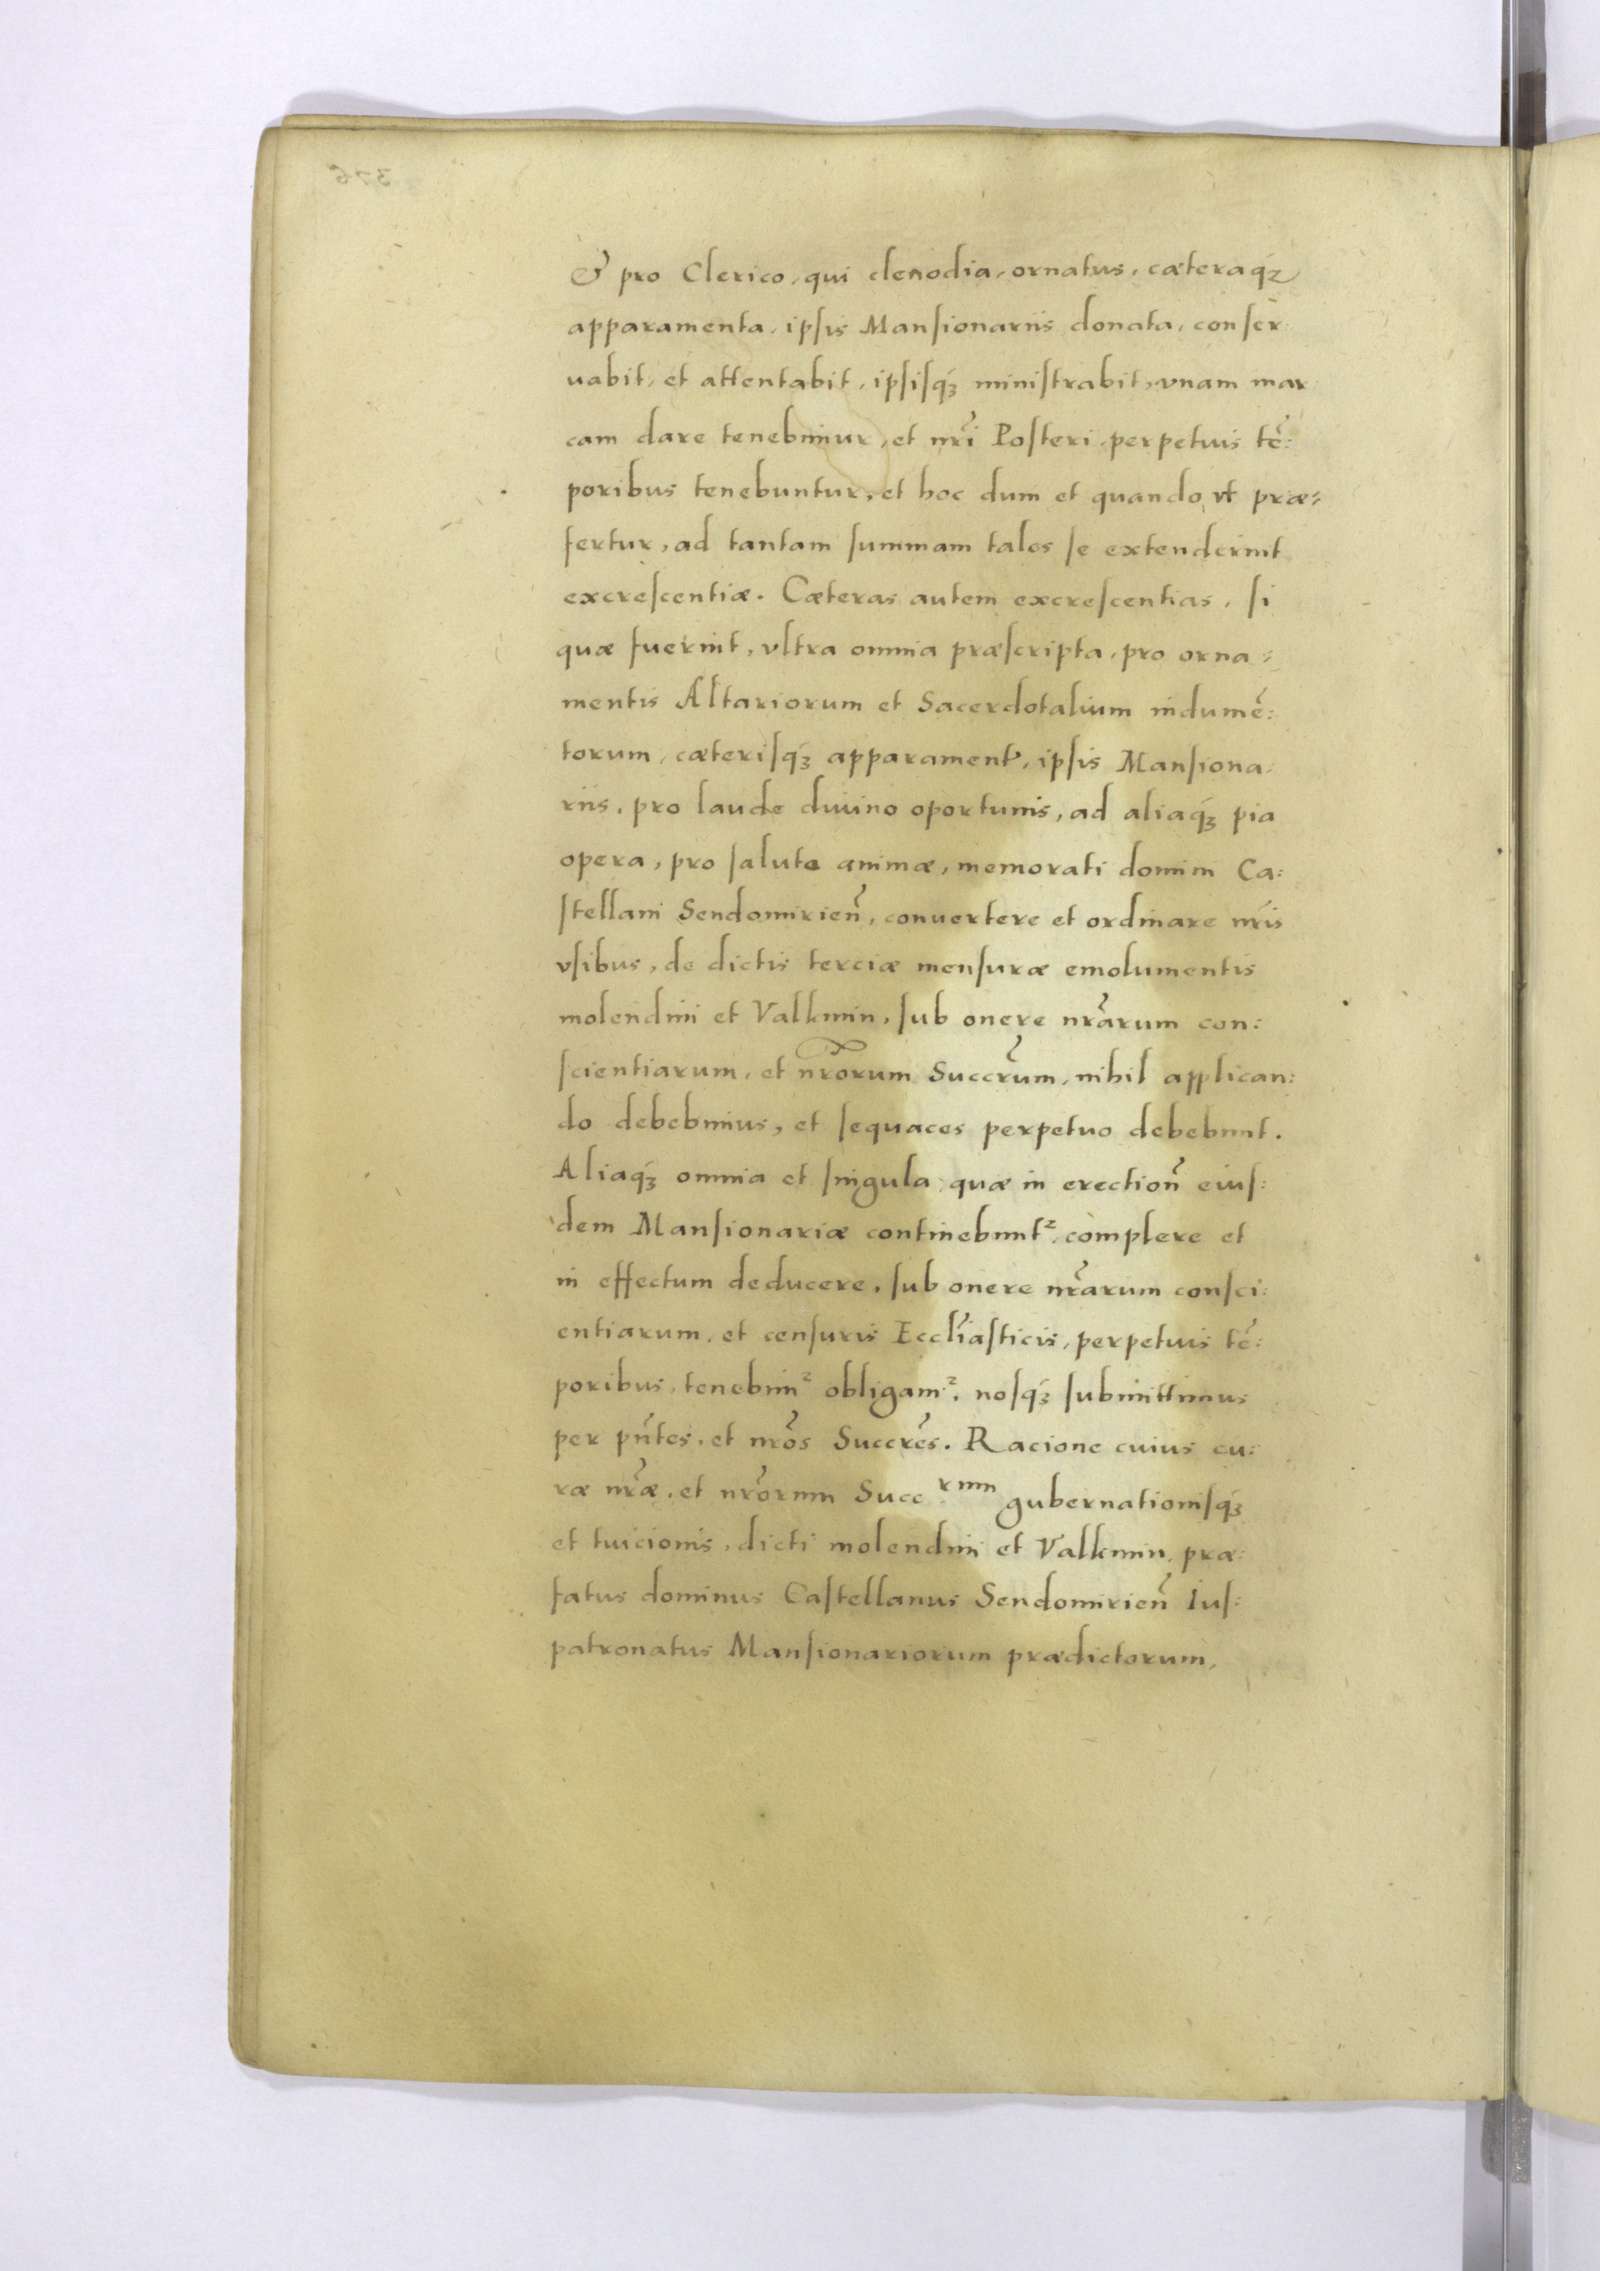 & pro Clerico, qui clenodia, ornatus, cæteraqꝫ
apparamenta, ipſis Manſionariis donata, conſer
uabit, et attentabit, ipſiſqꝫ miniſtrabit, vnam mar
cam dare tenebimur, et nr̃i Poſteri perpetuis tẽ:
poribus tenebuntur, et hoc dum et quando vt præ:
fertur, ad tantam ſummam tales ſe extenderint
excreſcentiæ. Cæteras autem excreſcentias, ſi
quæ fuerint, vltra omnia præſcripta, pro orna:
mentis Altariorum et Sacerdotalium indumẽ:
torum, cæteriſqꝫ apparament̃, ipſis Manſiona
riis, pro laude diuino oportunis, ad aliaqꝫ pia
opera, pro ſalute animæ, memorati domini Ca:
ſtellani Sendomirień, conuertere et ordinare nr̃is
vſibus, de dictis terciæ menſuræ emolumentis
molendini et Valkmin, ſub onere nr̃arum con:
ſcientiarum, et nr̃orum Succr̃um, nihil applican:
do debebimus, et ſequaces perpetuo debebunt.
Aliaqꝫ omnia et ſingula quæ in erectioñ eiuſ:
dem Manſionariæ continebunt², complere et
in effectum deducere, ſub onere nr̃arum conſci:
entiarum, et cenſuris Eccl̃iaſticis, perpetuis tẽ:
poribus, tenebim² obligam², noſqꝫ ſubmittimus
per pñtes, et nr̃os Succr̃es. Racione cuius cu:
ræ nr̃æ, et nr̃orum Succ rum gubernationiſqꝫ
et tuicionis, dicti molendini et Valkmin, præ:
fatus dominus Caſtellanus Sendomirieñ Iuſ:
patronatus Manſionariorum prædictorum,